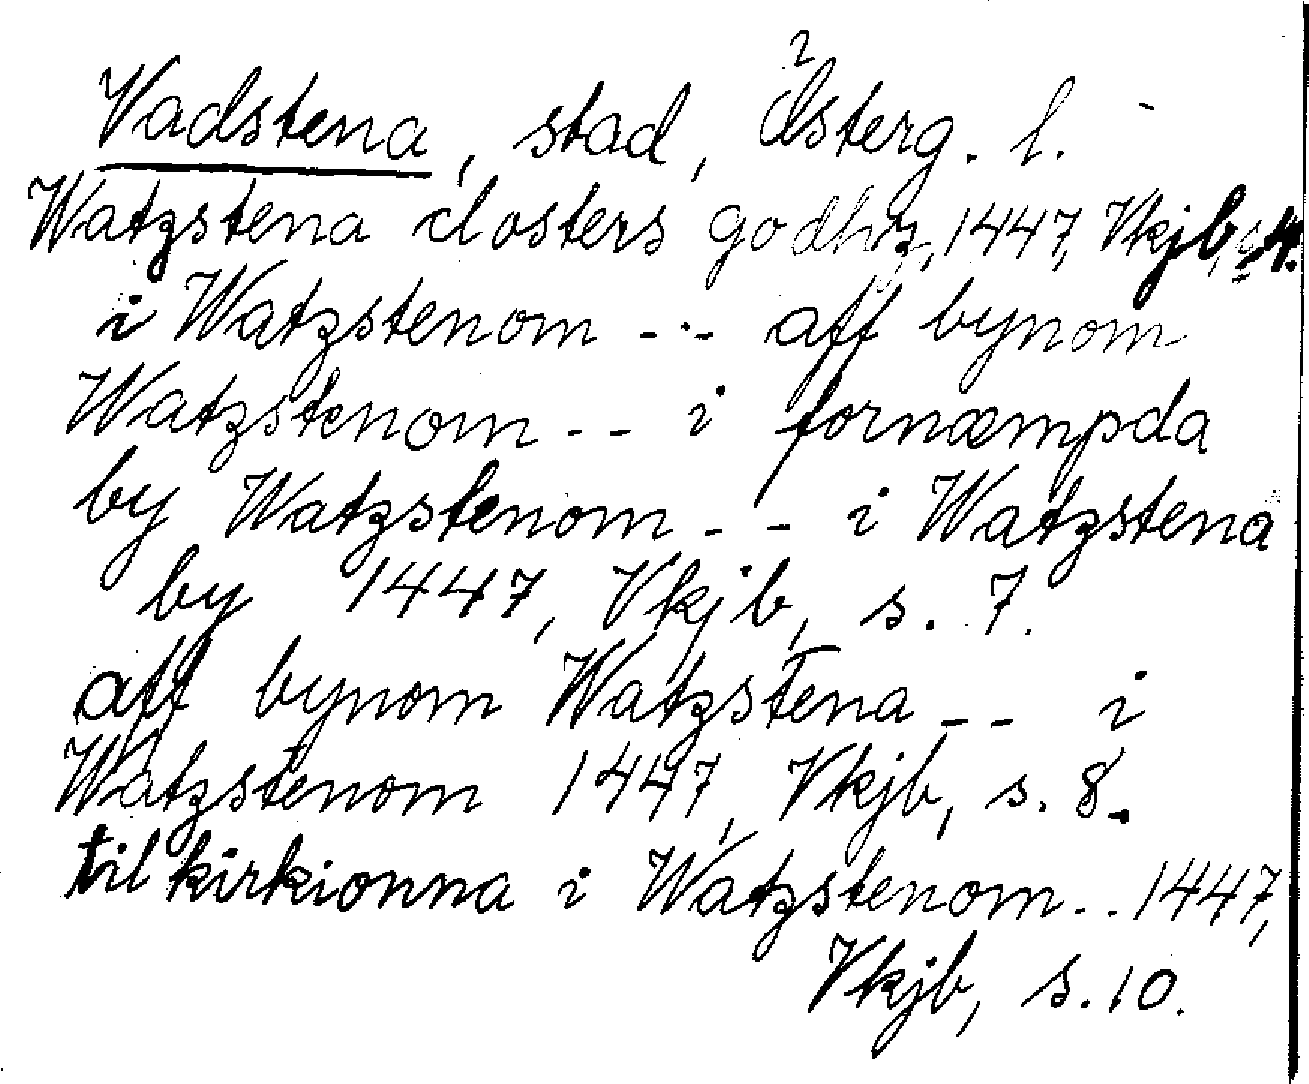 2
Vadstena, stad, Österg. l.
Watzstena closters godhz, 1447, Vkjb, s. 4.
i Watzstenom - - - aff bynom
Watzstenom - - i fornæmpda
by Watzstenom - - i Watzstena
by 1447, Vkjb, s. 7.
aff bynom Watzstena - - i
Watzstenom 1447, Vkjb, s. 8.
til kirkionna i Watzstenom - - 1447,
Vkjb, s. 10.